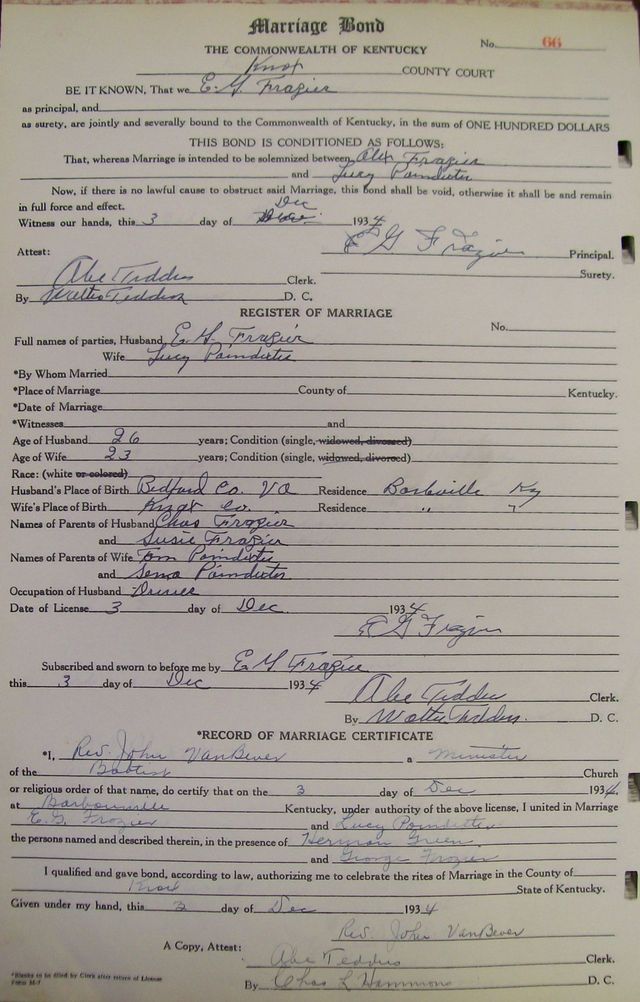 Marriage Bond
THE COMMONWEALTH OF KENTUCKY No. 66
Knox COUNTY COURT
BE IT KNOWN, That we E. G. Frazier
as principal, and
as surety, are jointly and severally bound to the Commonwealth of Kentucky, in the sum of ONE HUNDRED DOLLARS
THIS BOND IS CONDITIONED AS FOLLOWS:
That, whereas Marriage is intended to be solemnized between Alex Frazier
and Lucy Poindexter
Now, if there is no lawful cause to obstruct said Marriage, this bond shall be void, otherwise it shall be and remain
in full force and effect.
Witness our hands, this 3 day of Dec 1934
E G Frazier Principal.
Attest: Surety.
Abe Teddis Clerk.
By Walter Teddis D. C.
REGISTER OF MARRIAGE
No.
Full names of parties, Husband E. G. Frazier
Wife Lucy Poindexter
*By Whom Married
*Place of Marriage County of Kentucky.
*Date of Marriage
*Witnesses and
Age of Husband 26 years; Condition (single, widowed, divorced)
Age of Wife 23 years; Condition (single, widowed, divorced)
Race: (white or colored)
Husband's Place of Birth Bedford Co. Va Residence Barbville Ky
Wife's Place of Birth Knox Co. Residence " "
Names of Parents of Husband Chas Frazier
and Susie Frazier
Names of Parents of Wife Tom Poindexter
and Sema Poindexter
Occupation of Husband Driver
Date of License 3 day of Dec. 1934
E G Frazier
Subscribed and sworn to before me by E. G. Frazier
this 3 day of Dec 1934 Abe Teddis Clerk.
By Walter Teddis D. C.
*RECORD OF MARRIAGE CERTIFICATE
*I, Rev. John VanBever a Minister
of the Babtist Church
or religious order of that name, do certify that on the 3 day of Dec 1934.
at Barbourville Kentucky, under authority of the above license, I united in Marriage
E. G. Frazier and Lucy Poindexter
the persons named and described therein, in the presence of Herman Green
and George Frazier
I qualified and gave bond, according to law, authorizing me to celebrate the rites of Marriage in the County of
Knox State of Kentucky.
Given under my hand, this 3 day of Dec 1934
Rev. John VanBever
A Copy, Attest: Abe Teddis Clerk.
By Chas L Hammons D. C.
*Blanks to be filled by Clerk after return of License
Form M-7